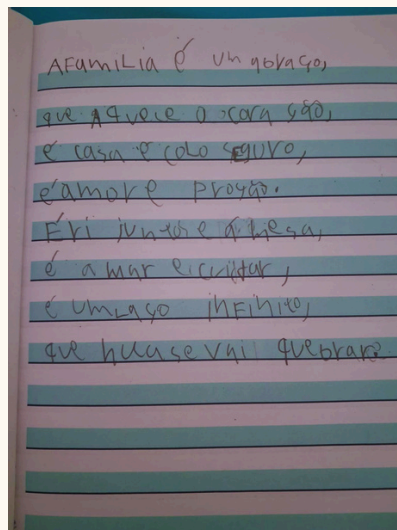 AFamiLia é um abraço,
que Aquece o coração,
é casa e colo seguro,
é amor e proção.
É ri juntos e à mesa,
é amar e cuidar,
é umLaço inFinito,
que nuca se vai quebrar.